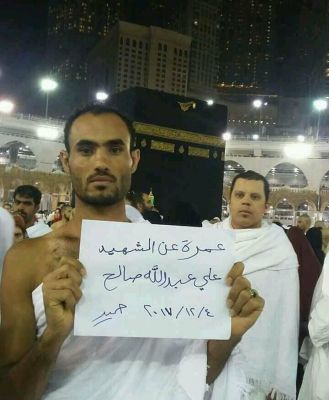 عمرة عن الشهيد
علي عبدالله صالح
٢٠١٧/١٢/٤